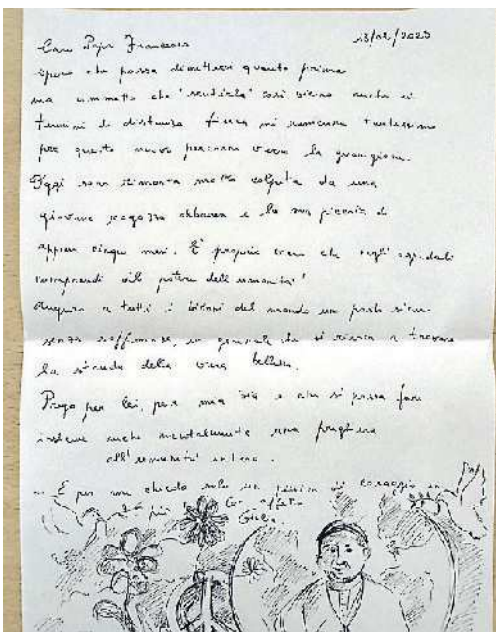 13/02/2025
Caro Papa Francesco
spero che possa dimettersi quanto prima
ma ammetto che "sentirla" così vicino anche in
termini di distanza fisica mi rincuora tantissimo
per questo nuovo percorso verso la guarigione.
Oggi sono rimasta molto colpita da una
giovane ragazza e la sua piccola di
appena cinque mesi. È proprio vero che negli ospedali
comprendi il potere dell'umanità!
Auguro a tutti i bisognosi del mondo un posto sicuro
senza, in generale che si riesca a trovare
la strada della vera bellezza.
Prego per lei, per mia zia e che si possa fare
insieme anche mentalmente una preghiera
all'umanità intera.
E per me chiedo solo un pizzico di coraggio in
più
Con affetto
Giulia